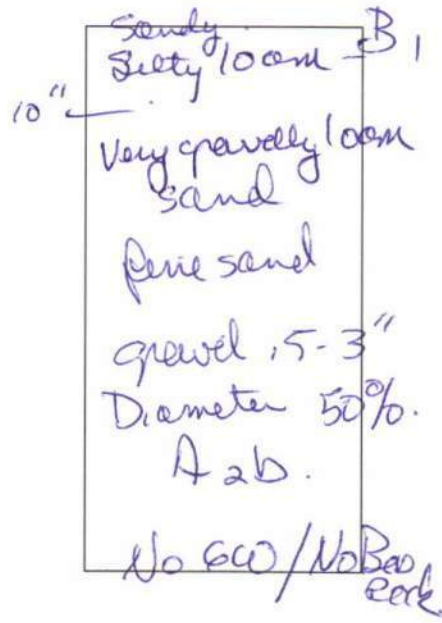 Sandy
Silty loam - B1
10"
Very gravelly loam
sand
fine sand
gravel .5-3"
Diameter 50%.
A2b.
No GW / No Bed
Rock